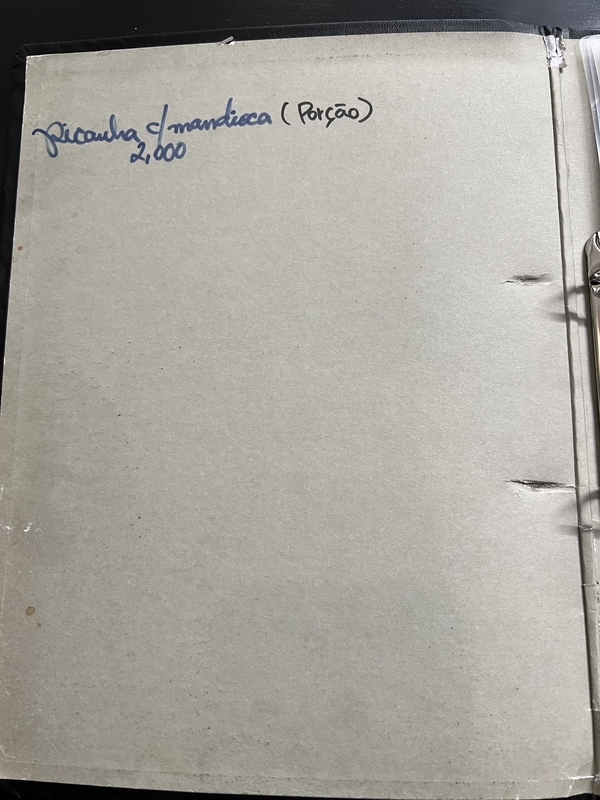 picanha c/ mandioca (Porção)
2,000